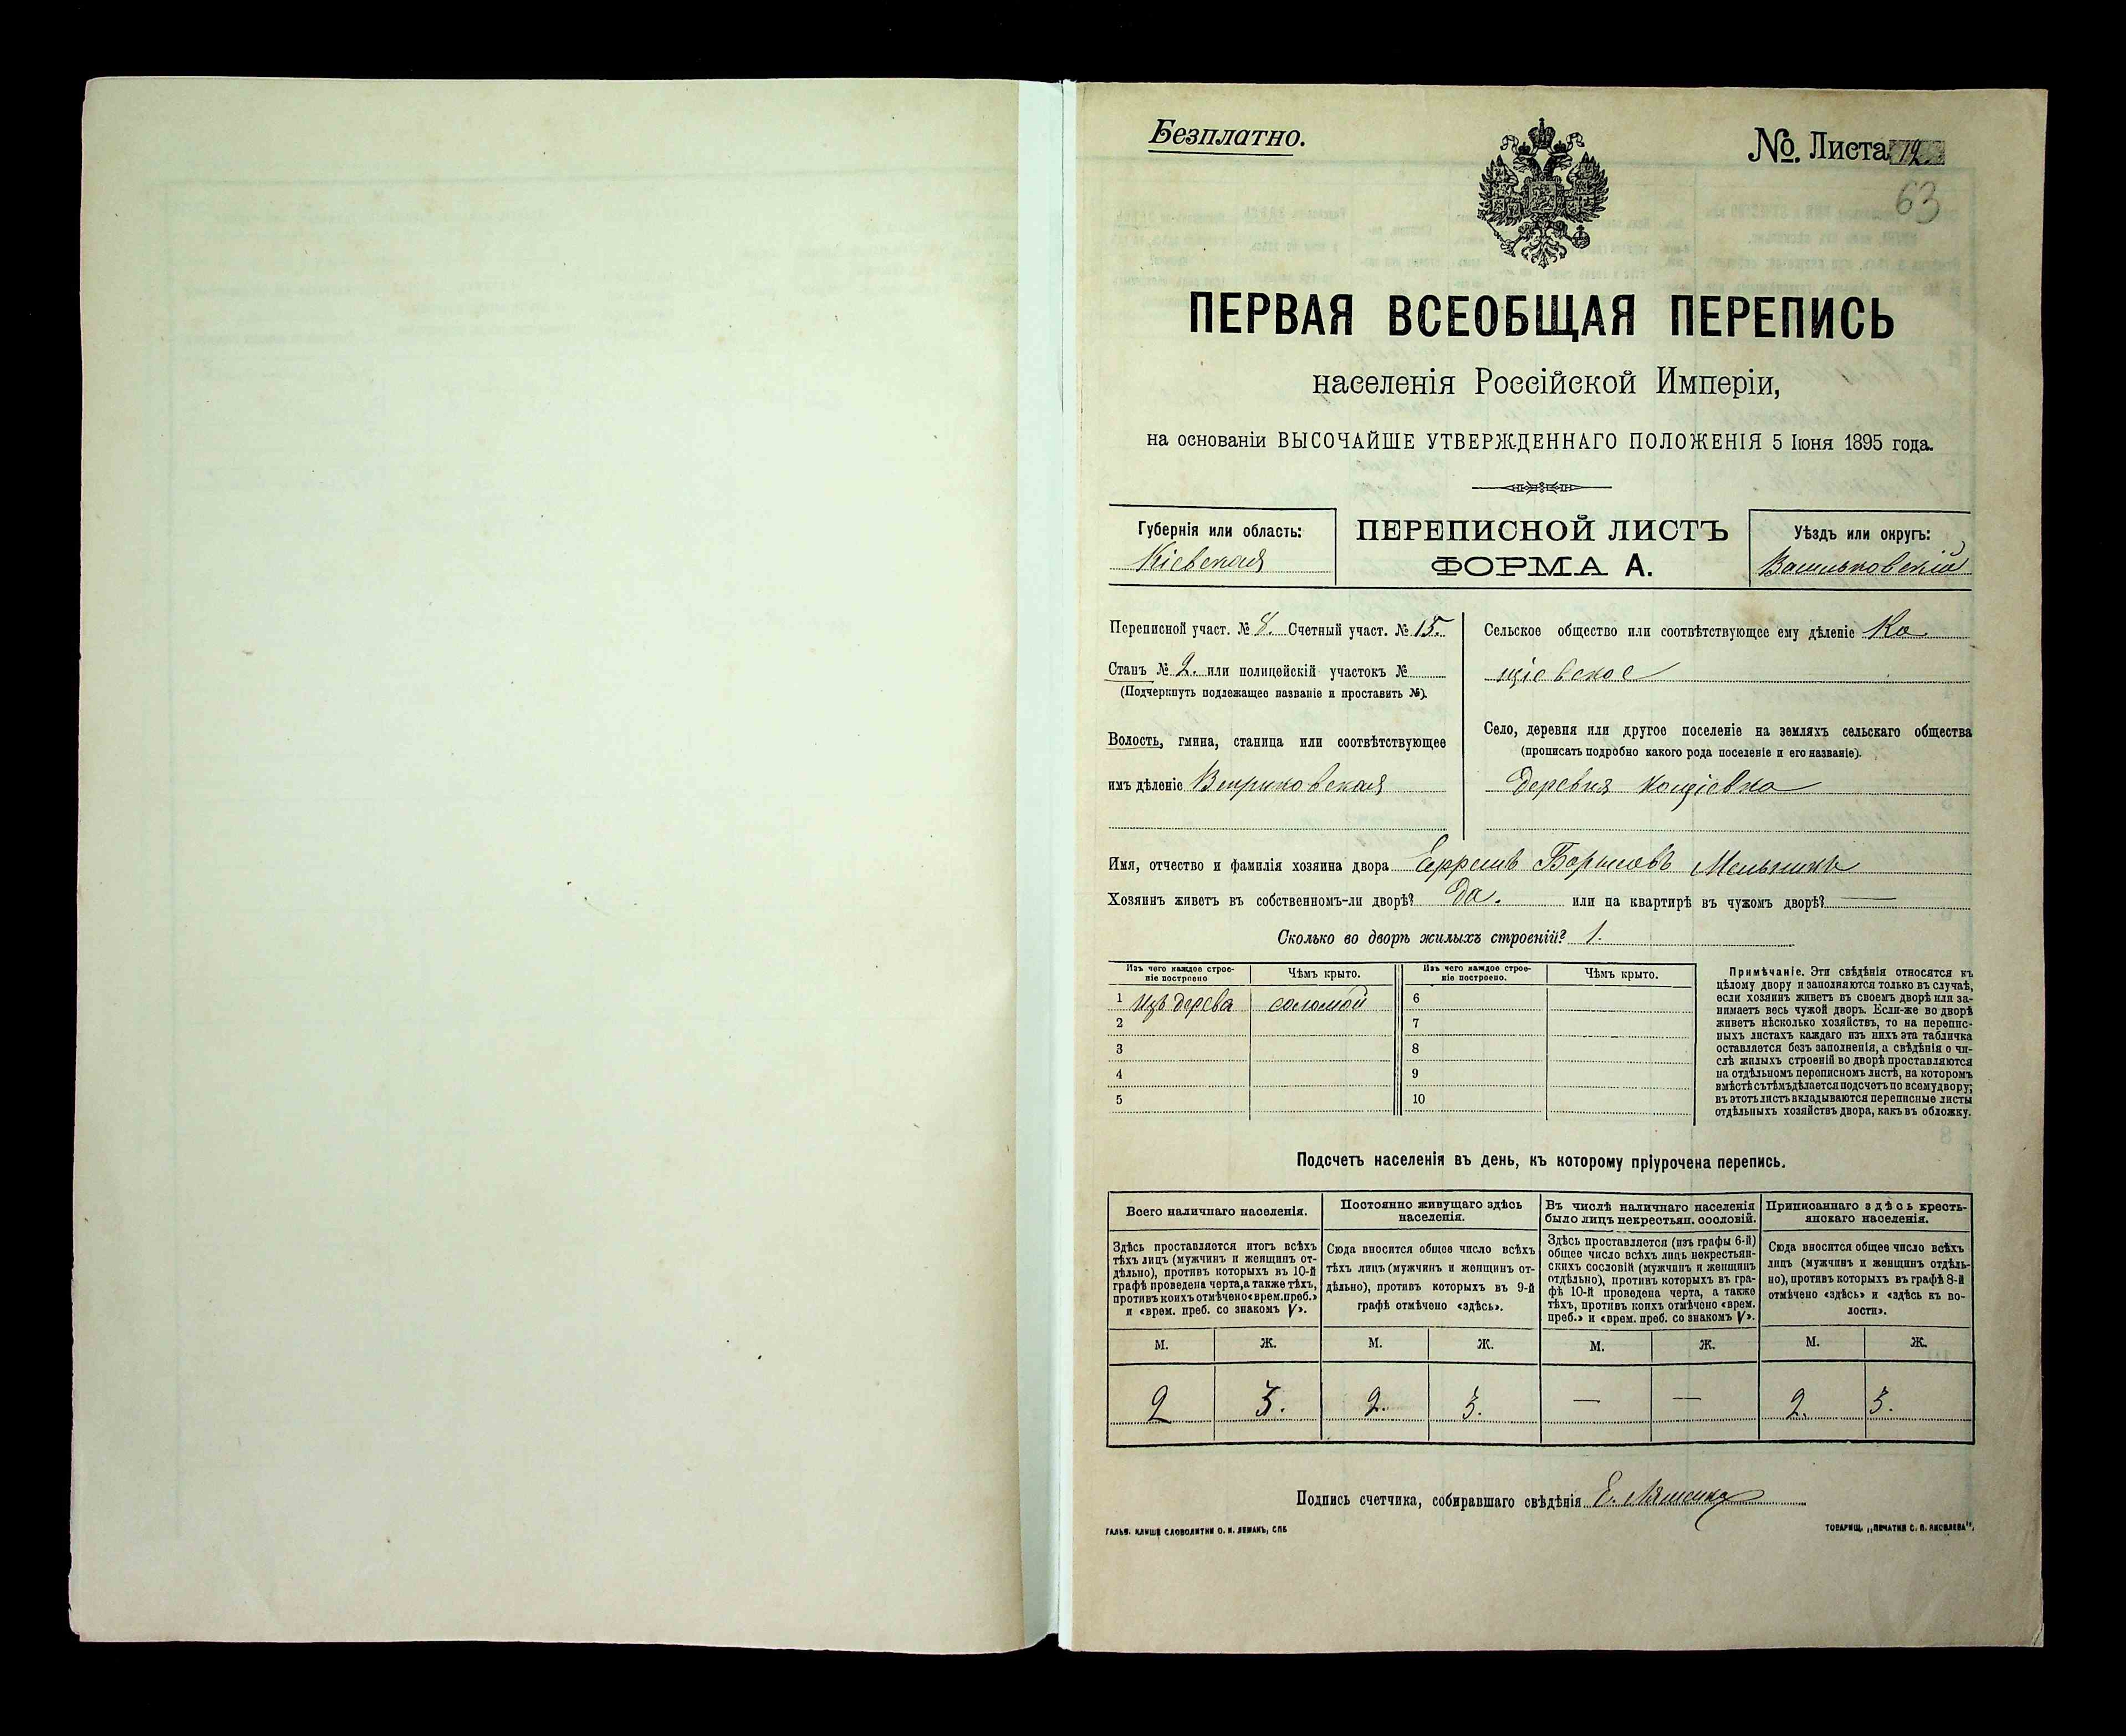 Безплатно.
№. Листа 12.
63
ПЕРВАЯ ВСЕОБЩАЯ ПЕРЕПИСЬ
населенія Россійской Имперіи,
на основаніи ВЫСОЧАЙШЕ УТВЕРЖДЕННАГО ПОЛОЖЕНІЯ 5 Іюня 1895 года.
Губернія или область:
Кіевская
ПЕРЕПИСНОЙ ЛИСТЪ
ФОРМА А.
Уѣздъ или округъ:
Васильковскій
Переписной участ. № 8. Счетный участ. № 15.
Станъ № 2. или полицейскій участокъ №
(Подчеркнуть подлежащее названіе и проставить №).
Волость, гмина, станица или соотвѣтствующее
имъ дѣленіе
Сельское общество или соотвѣтствующее ему дѣленіе Ко
щіевское
Село, деревня или другое поселеніе на земляхъ сельскаго общества
(прописать подробно какого рода поселеніе и его названіе).
деревня Кощіевка
Имя, отчество и фамилія хозяина двора Ефремъ Борисовъ Мельникъ
Хозяинъ живетъ въ собственномъ-ли дворѣ? Да. или на квартирѣ въ чужомъ дворѣ? —
Сколько во дворѣ жилыхъ строеній? 1.
Изъ чего каждое строе-
ніе построено
Чѣмъ крыто.
Изъ чего каждое строе-
ніе построено.
Чѣмъ крыто.
1 изъ дерева соломой 6
2 7
3 8
4 9
5 10
Примѣчаніе. Эти свѣдѣнія относятся къ
цѣлому двору и заполняются только въ случаѣ,
если хозяинъ живетъ въ своемъ дворѣ или за-
нимаетъ весь чужой дворъ. Если-же во дворѣ
живетъ нѣсколько хозяйствъ, то на перепис-
ныхъ листахъ каждаго изъ нихъ эта табличка
оставляется безъ заполненія, а свѣдѣнія о чи-
слѣ жилыхъ строеній во дворѣ проставляются
на отдѣльномъ переписномъ листѣ, на которомъ
вмѣстѣ съ тѣмъ дѣлается подсчетъ по всему двору;
въ этотъ листъ вкладываются переписные листы
отдѣльныхъ хозяйствъ двора, какъ въ обложку.
Подсчетъ населенія въ день, къ которому пріурочена перепись.
Всего наличнаго населенія.
Здѣсь проставляется итогъ всѣхъ
тѣхъ лицъ (мужчинъ и женщинъ от-
дѣльно), противъ которыхъ въ 10-й
графѣ проведена черта, а также тѣхъ,
противъ коихъ отмѣчено «врем. преб.»
и «врем. преб. со знакомъ V».
Постоянно живущаго здѣсь
населенія.
Сюда вносится общее число всѣхъ
тѣхъ лицъ (мужчинъ и женщинъ от-
дѣльно), противъ которыхъ въ 9-й
графѣ отмѣчено «здѣсь».
Въ числѣ наличнаго населенія
было лицъ некрестьян. сословій.
Здѣсь проставляется (изъ графы 6-й)
общее число всѣхъ лицъ некрестьян-
скихъ сословій (мужчинъ и женщинъ
отдѣльно), противъ которыхъ въ гра-
фѣ 10-й проведена черта, а также
тѣхъ, противъ коихъ отмѣчено «врем.
преб.» и «врем. преб. со знакомъ V».
Приписаннаго здѣсь кресть-
янскаго населенія.
Сюда вносится общее число всѣхъ
лицъ (мужчинъ и женщинъ отдѣль-
но), противъ которыхъ въ графѣ 8-й
отмѣчено «здѣсь» и «здѣсь къ во-
лости».
М. Ж. М. Ж. М. Ж. М. Ж.
2 3. 2. 3. — — 2. 3.
Подпись счетчика, собиравшаго свѣдѣнія Е. Ляшенко
ГАЛЬВ. КЛИШЕ СЛОВОЛИТНИ О. И. ЛЕМАНЪ, СПБ
ТОВАРИЩ. „ПЕЧАТНЯ С. П. ЯКОВЛЕВА".